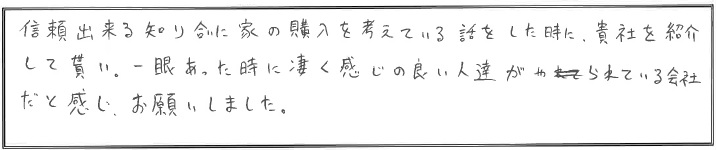 信頼出来る知り合に家の購入を考えている話をした時に、貴社を紹介
して貰い。一眼あった時に凄く感じの良い人達がやられている会社
だと感じ、お願いしました。